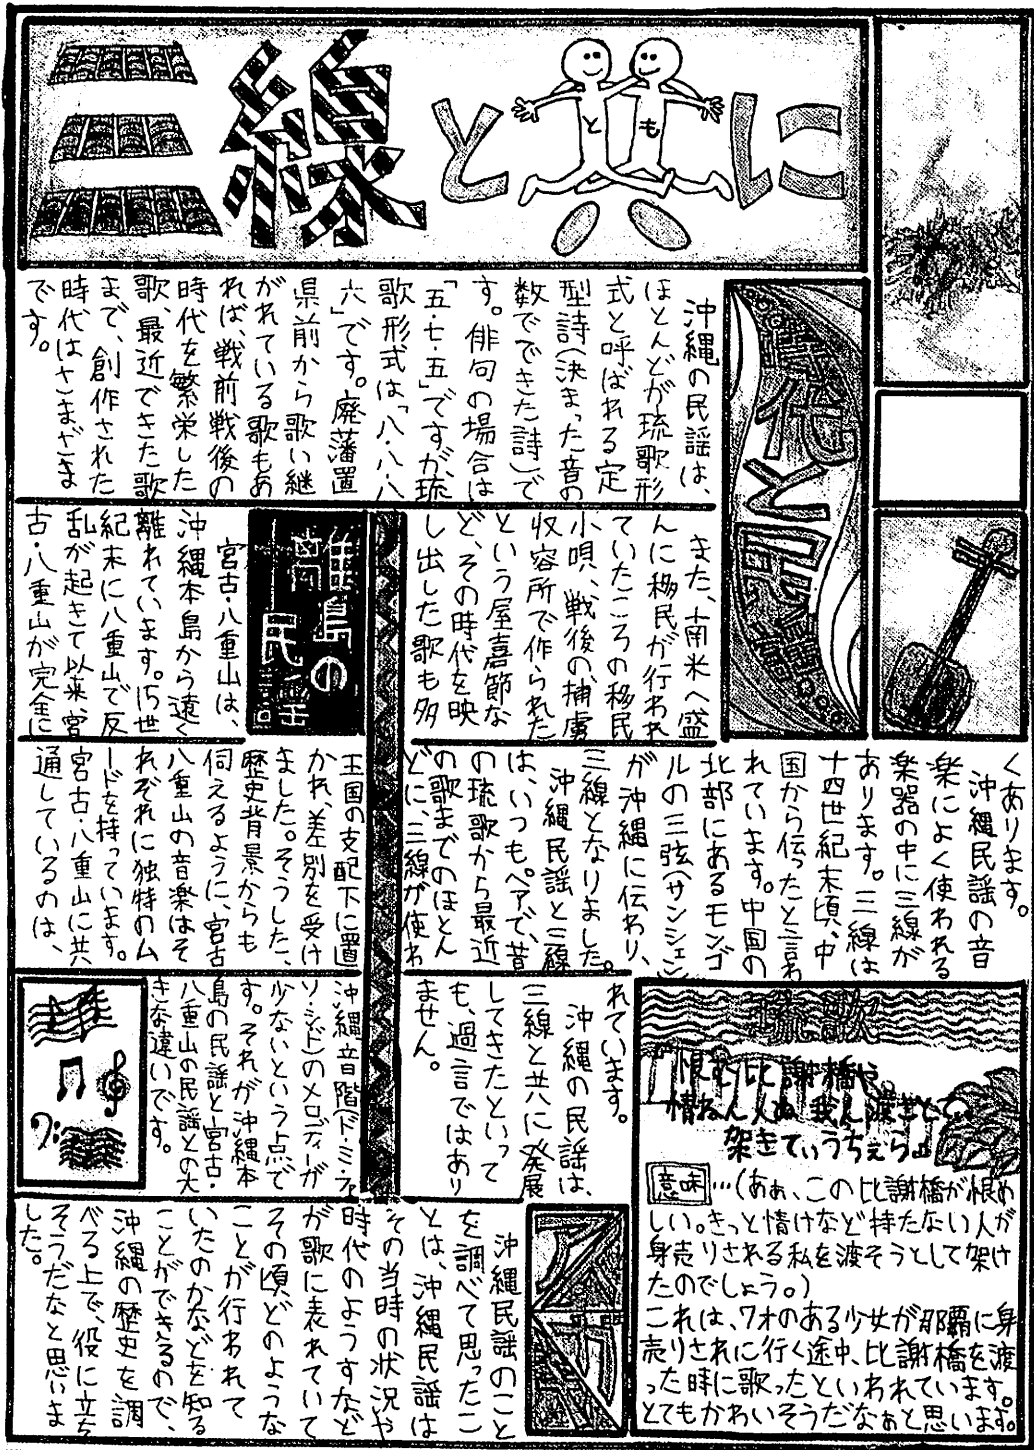 三線と共に
とも
時代と民謡
沖縄の民謡は、
ほとんどが琉歌形
式と呼ばれる定
型詩(決まった音の
数でできた詩)で
す。俳句の場合は
「五・七・五」ですが、琉
歌形式は「八・八・八・
六」です。廃藩置
県前から歌い継
がれている歌もあ
れば、戦前戦後の
時代を繁栄した
歌、最近できた歌
まで、創作された
時代はさまざま
です。
また、南米へ盛
んに移民が行われ
ていたころの移民
小唄、戦後の、捕虜
収容所で作られた
という屋嘉節な
ど、その時代を映
し出した歌も多
くあります。
沖縄民謡の音
楽によく使われる
楽器の中に三線が
あります。三線は
十四世紀末頃、中
国から伝ったと言わ
れています。中国の
北部にあるモンゴ
ルの三弦(サンシェン)
が沖縄に伝わり、
三線となりました。
沖縄民謡と三線
は、いつもペアで、昔
の琉歌から最近
の歌までのほとん
どに、三線が使わ
れています。
沖縄の民謡は、
三線と共に発展
してきたといって
も、過言ではあり
ません。
離島の民謡
宮古・八重山は、
沖縄本島から遠く
離れています。15世
紀末に八重山で反
乱が起きて以来、宮
古・八重山が完全に
王国の支配下に置
かれ、差別を受け
ました。そうした、
歴史背景からも
伺えるように、宮古・
八重山の音楽はそ
れぞれに独特のム
ードを持っています。
宮古・八重山に共
通しているのは、
沖縄音階(ド・ミ・ファ・
ソ・シ・ド)のメロディーが
少ないという点で
す。それが沖縄本
島の民謡と宮古・
八重山の民謡との大
きな違いです。
琉歌
「恨む比謝橋や
情ねん人ぬ 我ん渡さとぅ
架きてぃうちぇら」
意味…(あぁ、この比謝橋が恨め
しい。きっと情けなど持たない人が
身売りされる私を渡そうとして架け
たのでしょう。)
これは、ワオのある少女が那覇に身
売りされに行く途中、比謝橋を渡
った時に歌ったといわれています。
とてもかわいそうだなぁと思います。
沖縄民謡のこと
を調べて思ったこ
とは、沖縄民謡は
その当時の状況や
時代のようすなど
が歌に表れていて
その頃どのような
ことが行われて
いたのかなどを知る
ことができるので、
沖縄の歴史を調
べる上で、役に立ち
そうだなと思いま
した。